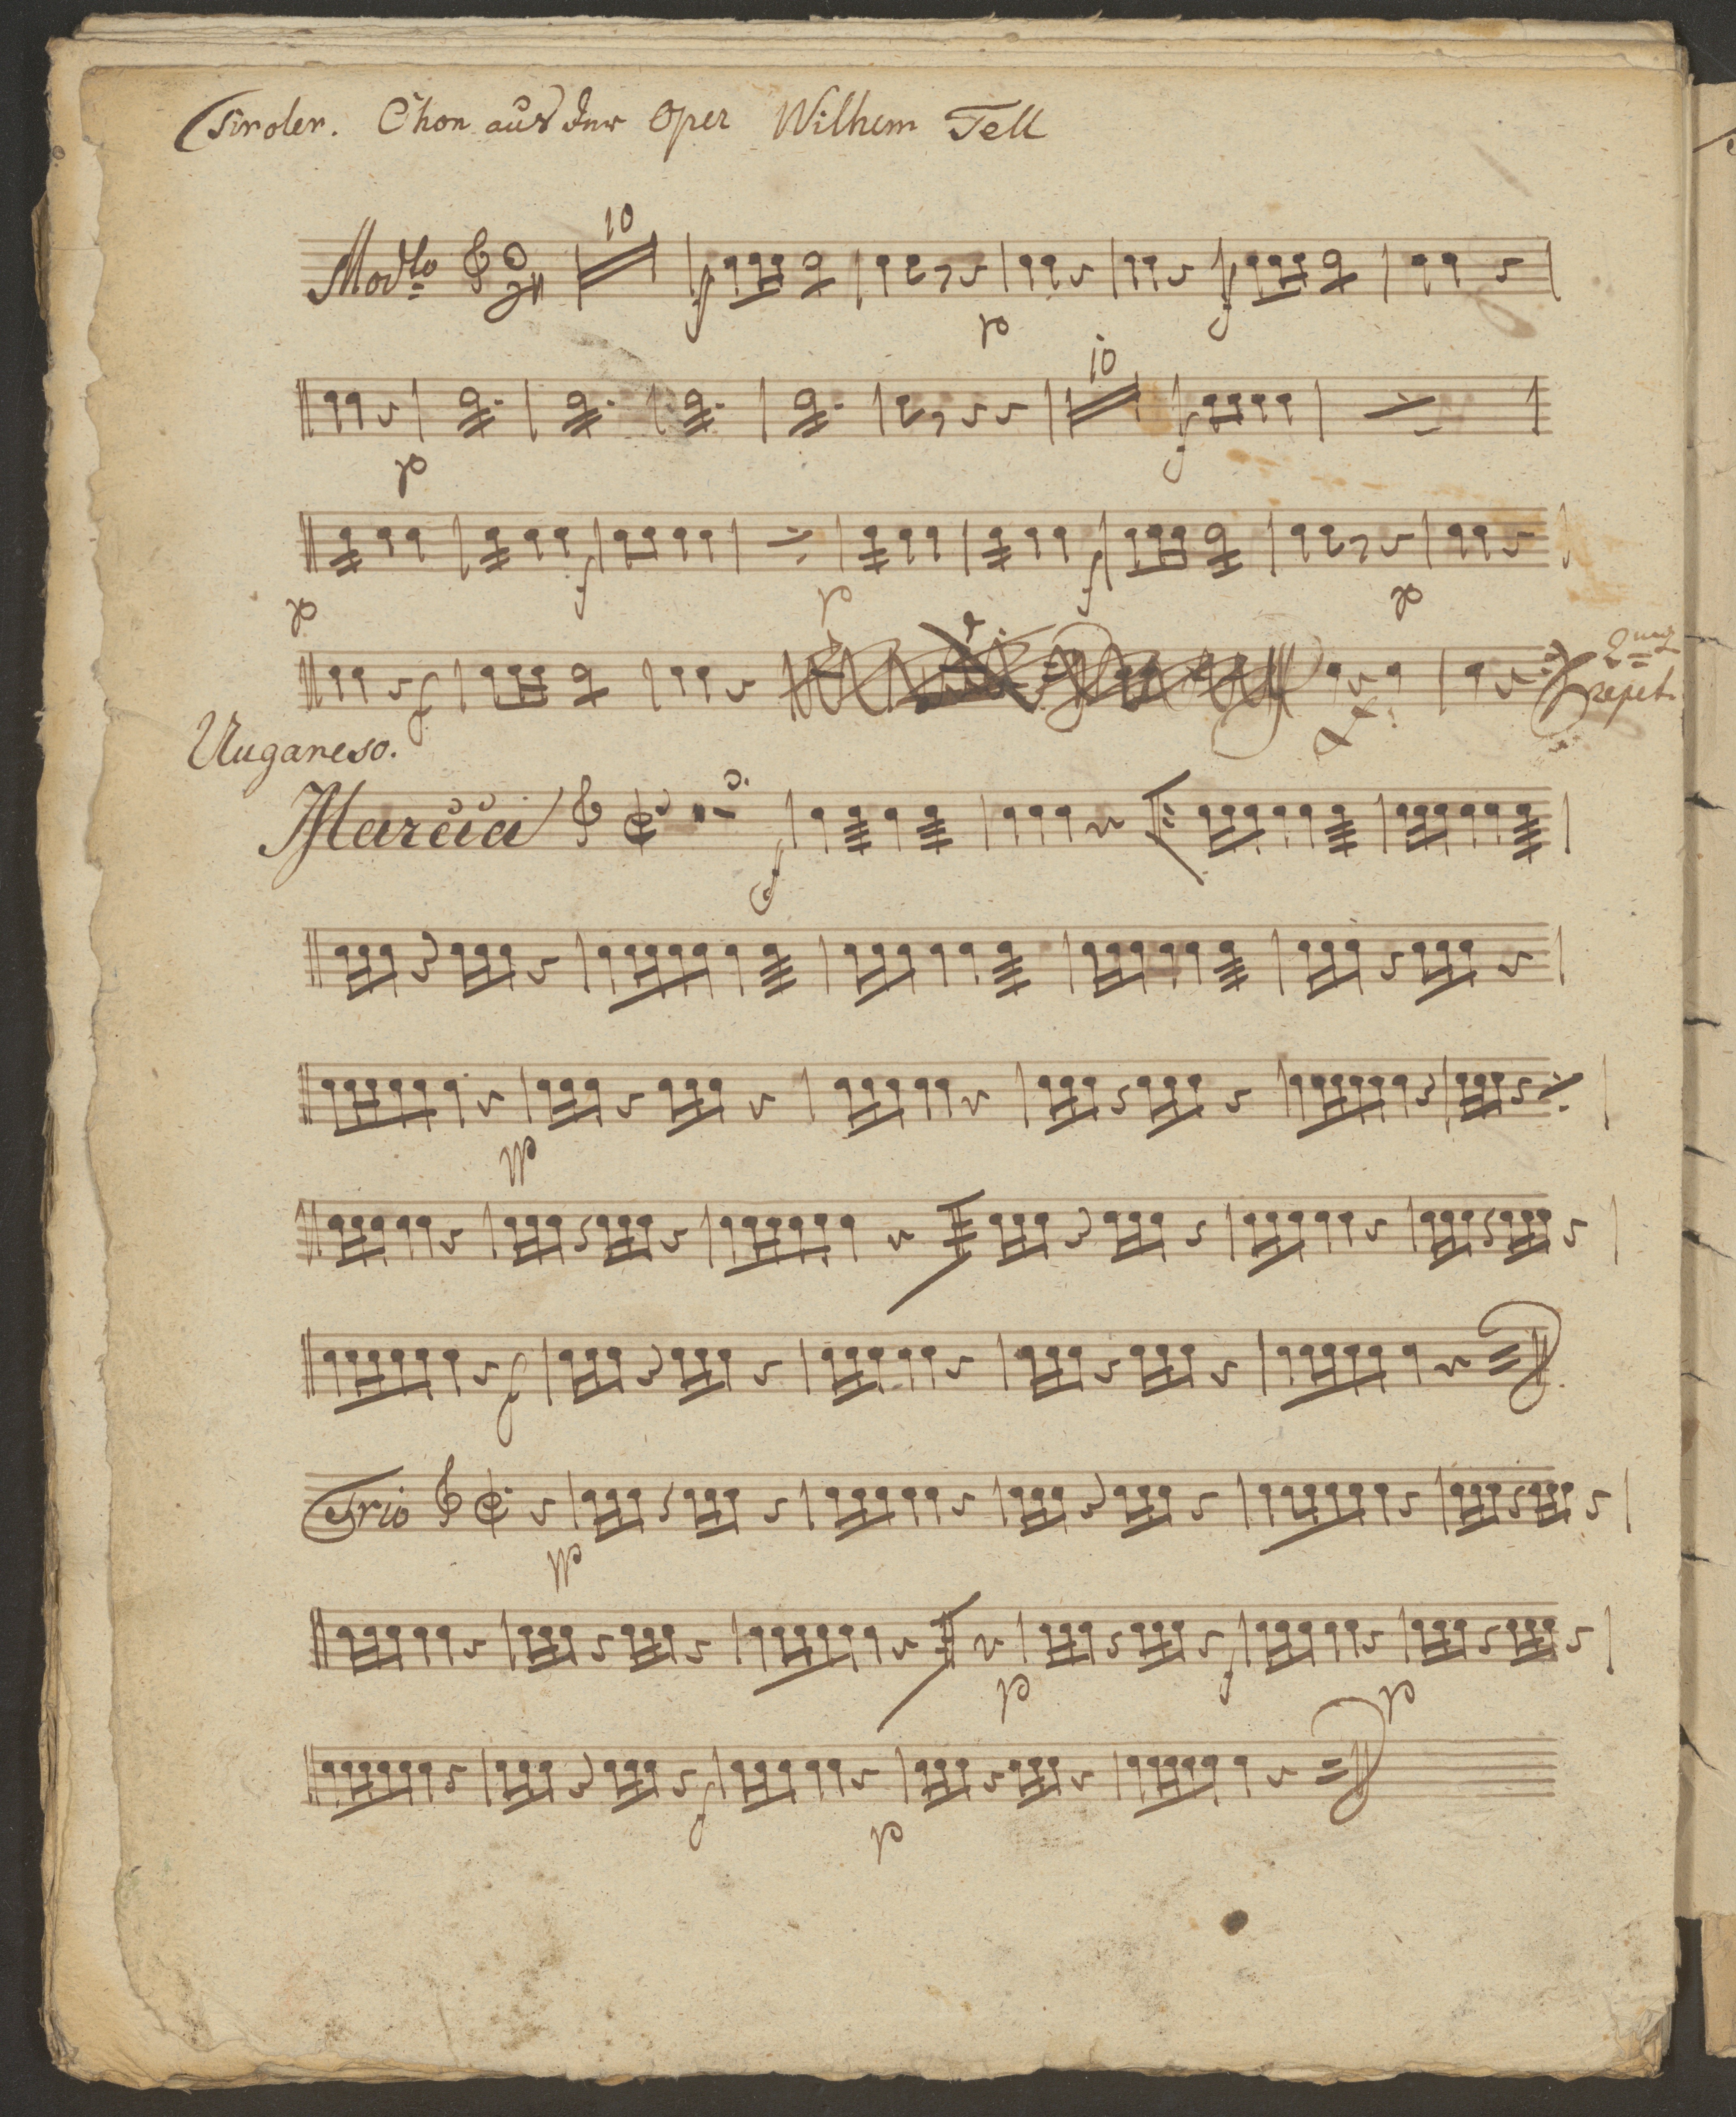 Tiroler. Chor aus der Oper Wilhem Tell
10
Modto
f p f
10
p f
p f p f p
f 2mq repet.
Ungareso.
Marcia
f
pp
f
Trio
pp
p f p
f p